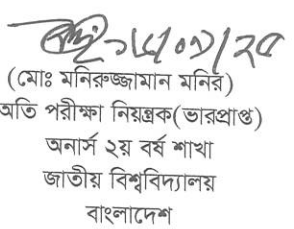 (মোঃ মনিরুজ্জামান মনির)
অতি পরীক্ষা নিয়ন্ত্রক(ভারপ্রাপ্ত)
অনার্স ২য় বর্ষ শাখা
জাতীয় বিশ্ববিদ্যালয়
বাংলাদেশ